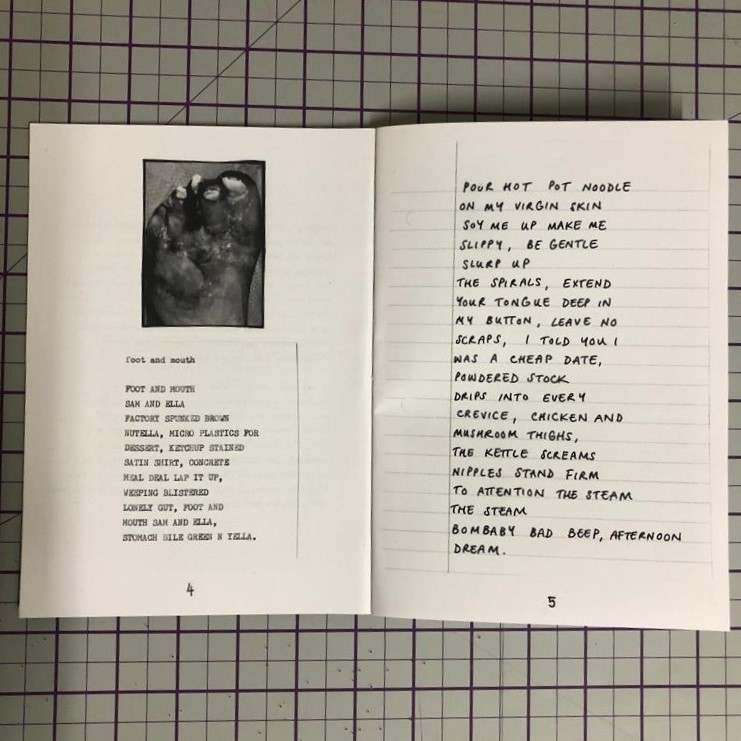 foot and mouth
FOOT AND MOUTH
SAM AND ELLA
FACTORY SPUNKED BROWN
NUTELLA, MICRO PLASTICS FOR
DESSERT, KETCHUP STAINED
SATIN SHIRT, CONCRETE
MEAL DEAL LAP IT UP,
WEEPING BLISTERED
LONELY GUT, FOOT AND
MOUTH SAM AND ELLA,
STOMACH BILE GREEN N YELLA.
4
POUR HOT POT NOODLE
ON MY VIRGIN SKIN
SOY ME UP MAKE ME
SLIPPY, BE GENTLE
SLURP UP
THE SPIRALS, EXTEND
YOUR TONGUE DEEP IN
MY BUTTON, LEAVE NO
SCRAPS, I TOLD YOU I
WAS A CHEAP DATE,
POWDERED STOCK
DRIPS INTO EVERY
CREVICE, CHICKEN AND
MUSHROOM THIGHS,
THE KETTLE SCREAMS
NIPPLES STAND FIRM
TO ATTENTION THE STEAM
THE STEAM
BOMBABY BAD BEEP, AFTERNOON
DREAM.
5